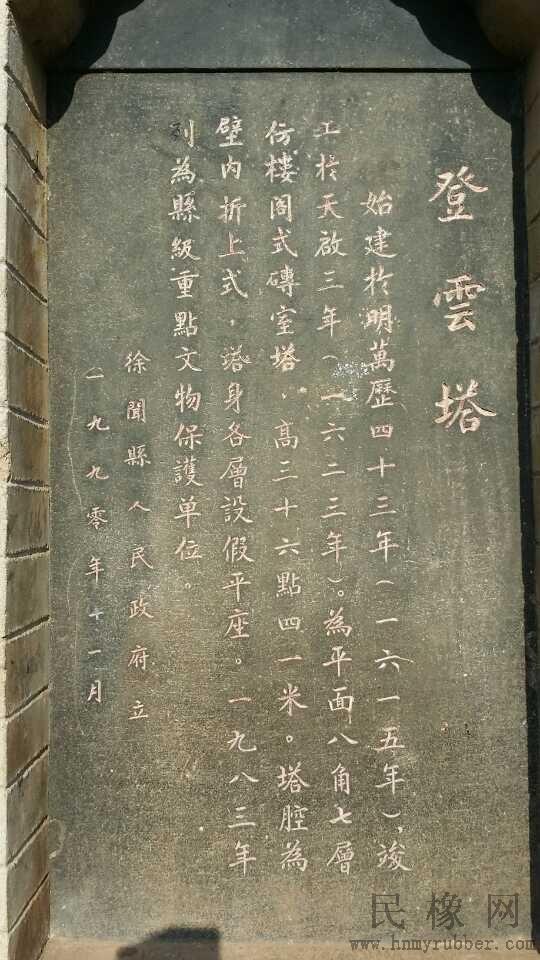 登雲塔
始建扵明萬歷四十三年(一六一五年),竣
工扵天啟三年(一六二三年)。為平面八角七層
仿樓阁式磚室塔,高三十六點四一米。塔腔為
壁内折上式,塔身各層設假平座。一九八三年
列為縣級重點文物保護单位。
徐聞縣人民政府立
一九九零年十一月
民橡网
www.hnmyrubber.com